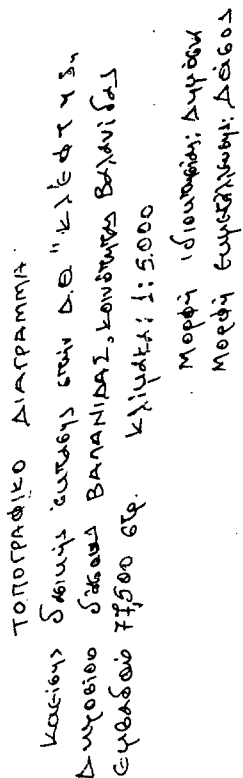 ΤΟΠΟΓΡΑΦΙΚΟ ΔΙΑΓΡΑΜΜΑ
καείσης δασικής έκτασης στην Δ.Θ "ΚΛΕΦΤΗΣ"
Δημοσίου δάσους ΒΑΛΑΝΙΔΑΣ, κοινότητας Βαλανίδας
Εμβαδού 77,500 στρ. Κλίμακα: 1:5.000
Μορφή ιδιοκτησίας: Δημόσιο
Μορφή εκμετάλλευσης: Δάσος